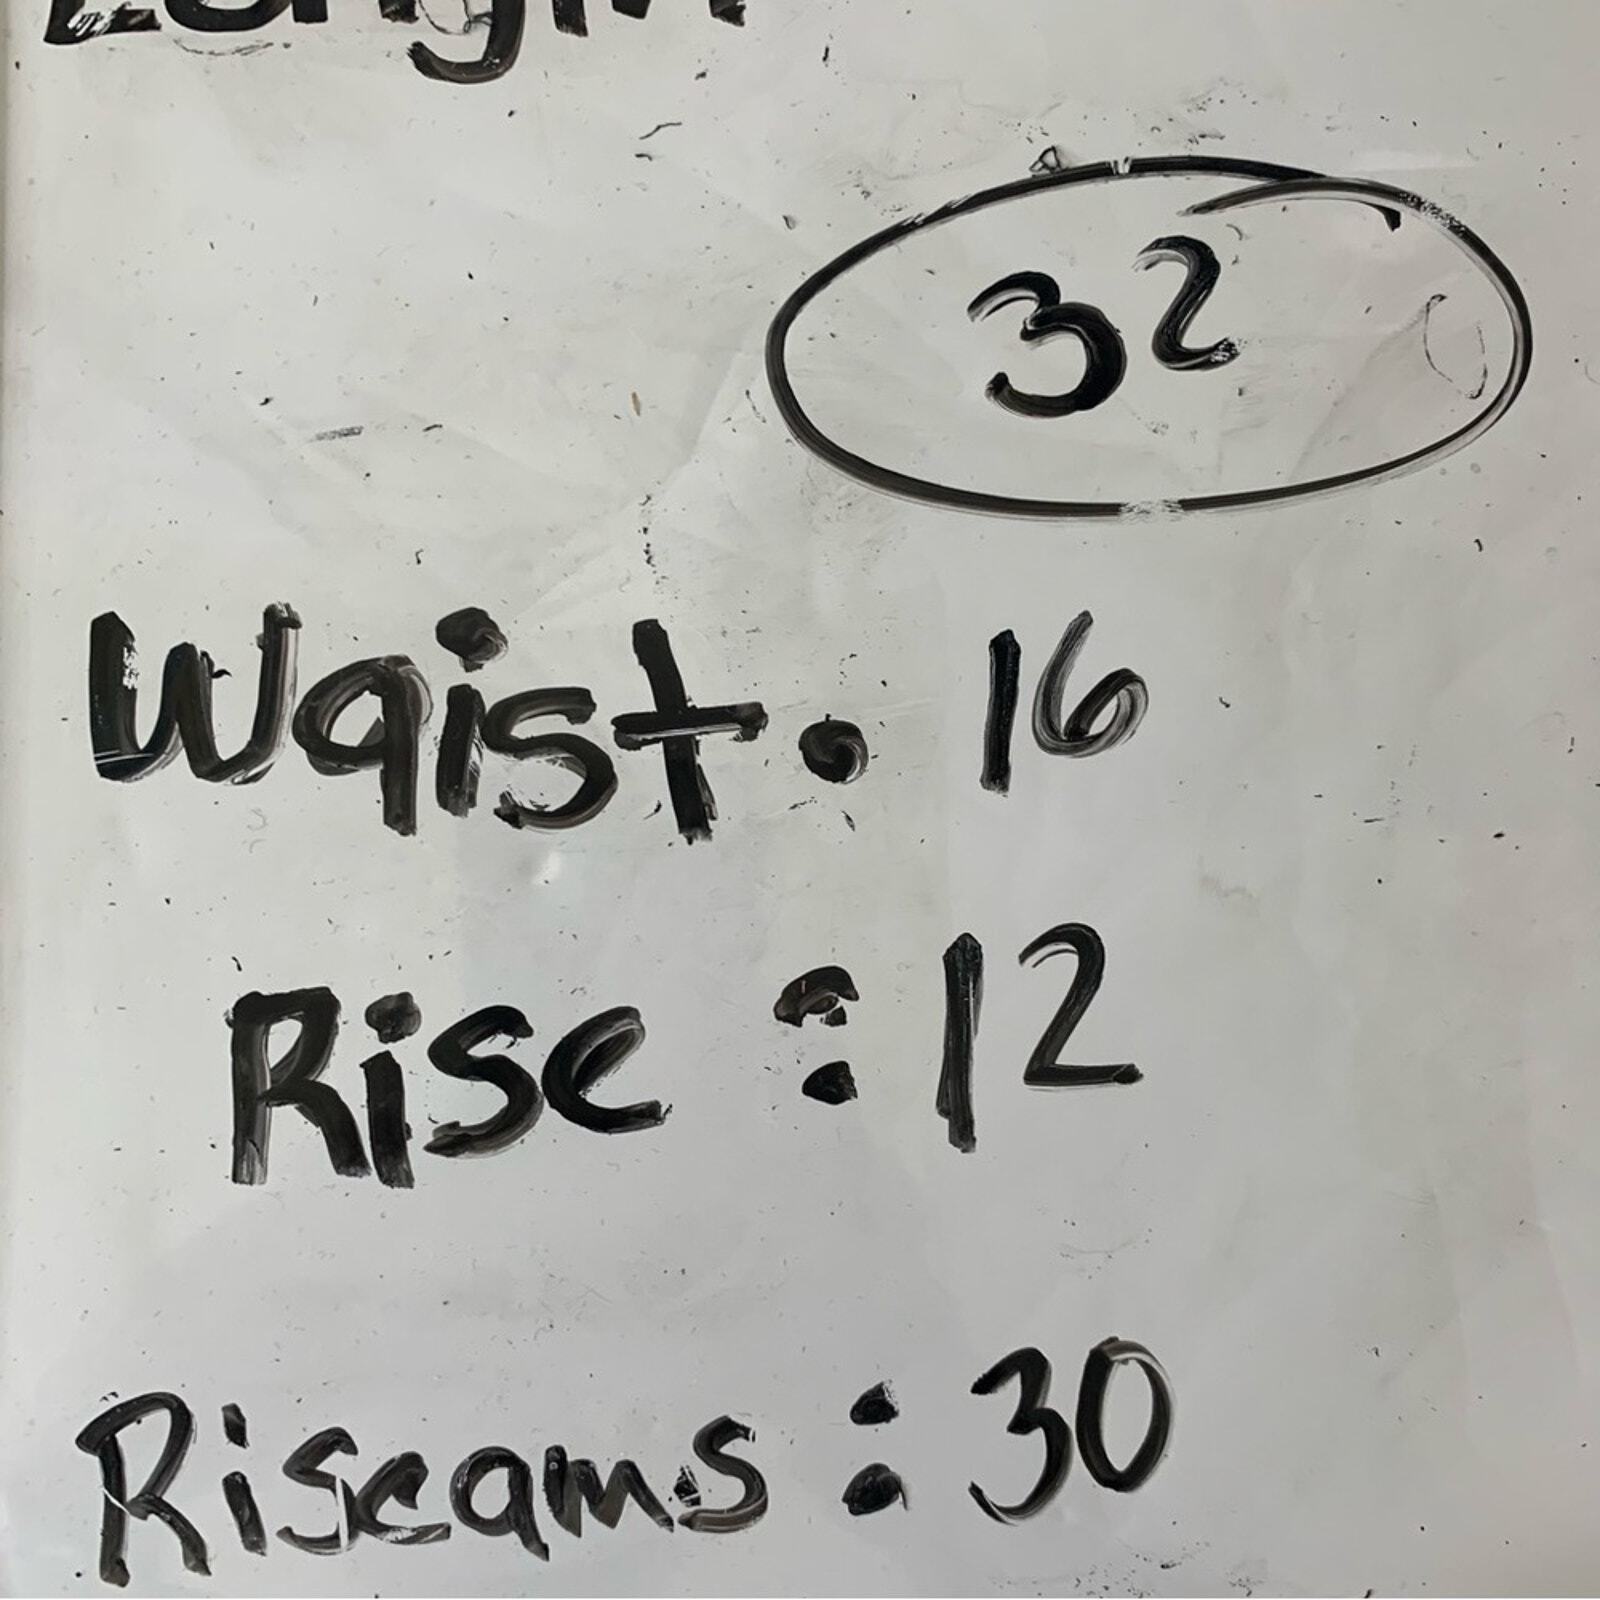 Length
32
Waist. 16
Rise : 12
Riseams : 30